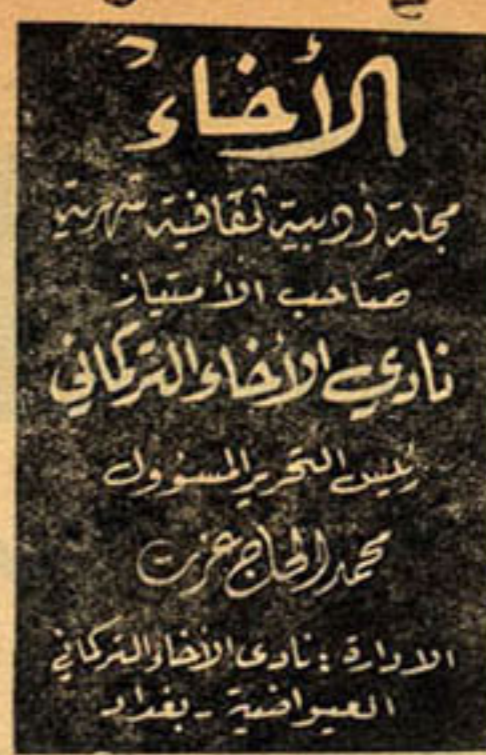 الأخاء
مجلة أدبية ثقافية شهرية
صاحب الأمتياز
نادي الأخاء التركماني
رئيس التحرير المسؤول
محمد الحاج عزت
الادارة : نادى الأخاء التركماني
العيواضية - بغداد